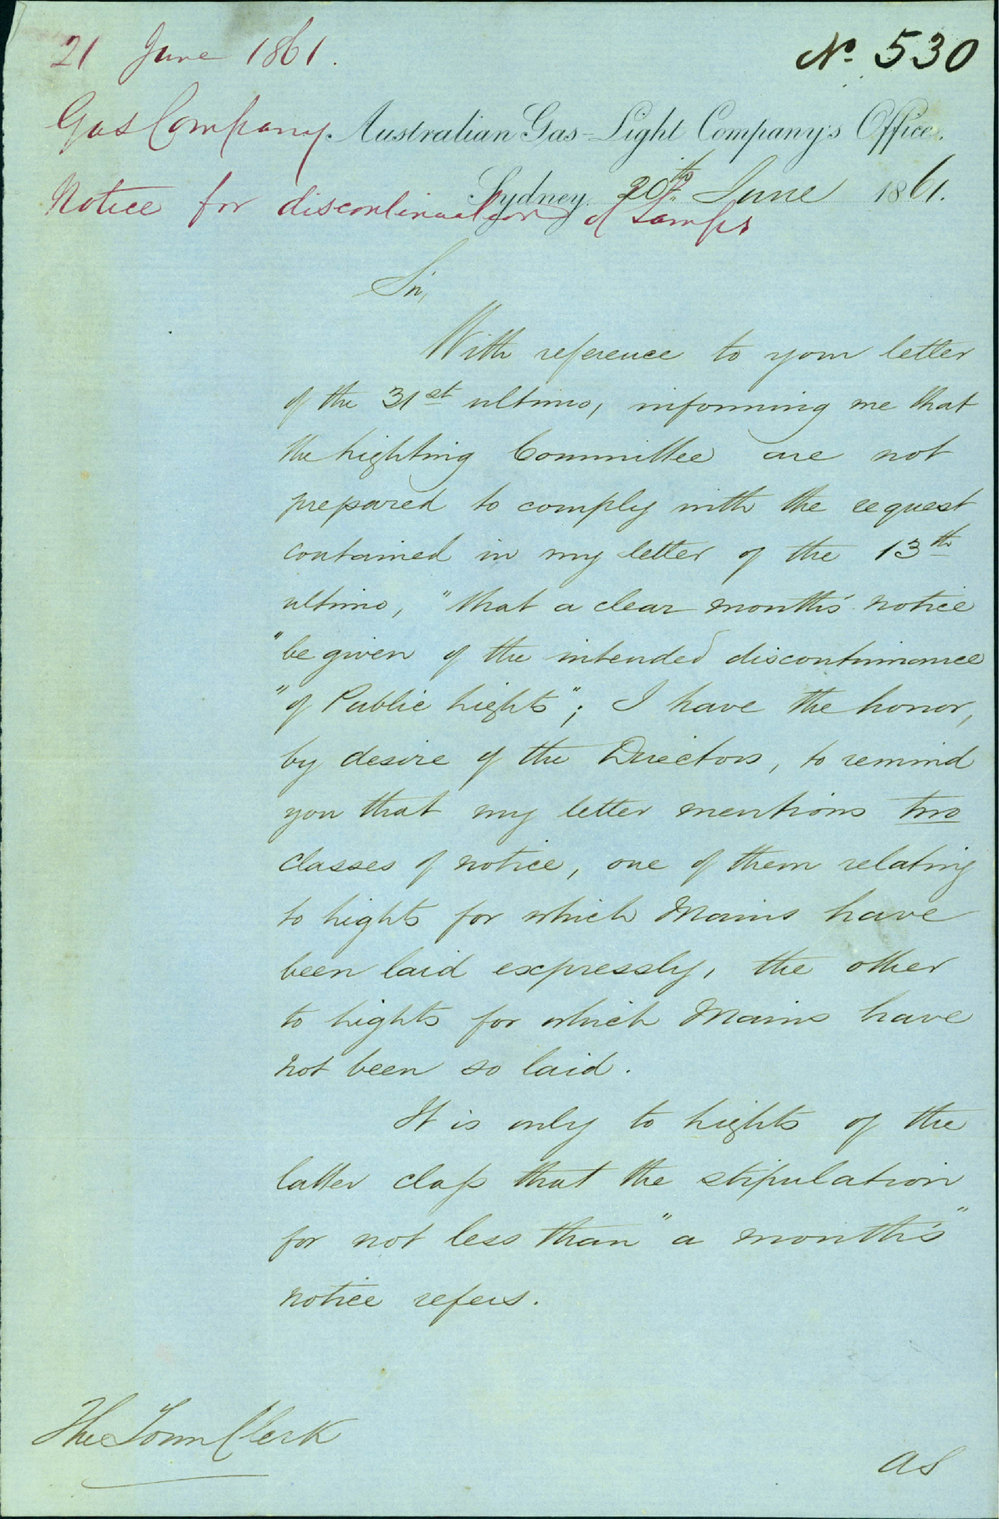 21 June 1861.
No. 530
Gas Company
Australian Gas-Light Company's Office.
Sydney 20th June 1861.
Notice for discontinuation of Lamps
Sir,
With reference to your letter
of the 31st ultimo, informing me that
the Lighting Committee are not
prepared to comply with the request
contained in my letter of the 13th
ultimo, "that a clear month's notice
"be given of the intended discontinuance
"of Public Lights"; I have the honor,
by desire of the Directors, to remind
you that my letter mentions two
classes of notice, one of them relating
to Lights for which Mains have
been laid expressly, the other
to Lights for which Mains have
not been so laid.
It is only to Lights of the
latter class that the stipulation
for not less than "a month's"
notice refers.
The Town Clerk
as